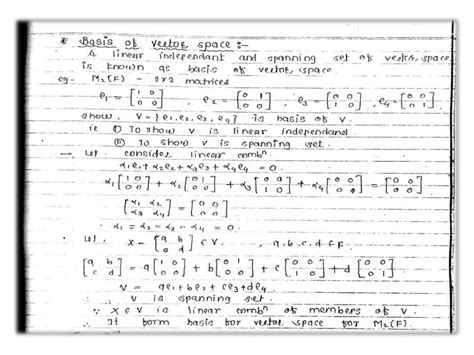 * Basis of vector space :-
A linear independant and spanning set of vector space
is known as basis of vector space
eg. M₂(F) - 2x2 matrices
e₁ = [1 0; 0 0] , e₂ = [0 1; 0 0] , e₃ = [0 0; 1 0] , e₄ = [0 0; 0 1]
show, V = {e₁, e₂, e₃, e₄} is basis of V.
ie ① To show V is linear independand
② To show V is spanning set.
— Let consider linear combⁿ
α₁e₁ + α₂e₂ + α₃e₃ + α₄e₄ = 0.
α₁ [1 0; 0 0] + α₂ [0 1; 0 0] + α₃ [0 0; 1 0] + α₄ [0 0; 0 1] = [0 0; 0 0]
[α₁ α₂; α₃ α₄] = [0 0; 0 0]
∴ α₁ = α₂ = α₃ = α₄ = 0.
Let, X = [a b; c d] ∈ V. , a, b, c, d ∈ F
[a b; c d] = a [1 0; 0 0] + b [0 1; 0 0] + c [0 0; 1 0] + d [0 0; 0 1]
V = ae₁ + be₂ + ce₃ + de₄
∴ V is spanning set.
∵ X ∈ V is linear combⁿ of members of V.
∴ It form basis for vector space for M₂(F).